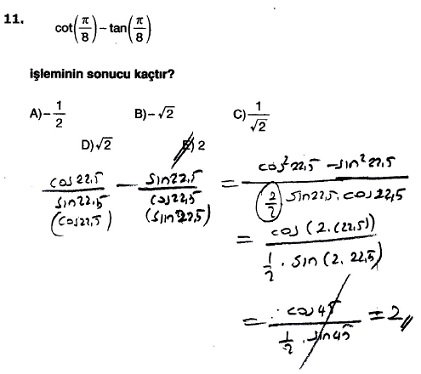 11.
cot(π/8) − tan(π/8)
işleminin sonucu kaçtır?
A) −1/2 B) −√2 C) 1/√2
D) √2 E) 2
cos22,5/sin22,5 − sin22,5/cos22,5 = (cos²22,5 − sin²22,5)/(2/2 sin22,5 . cos22,5)
(cos22,5) (sin22,5)
= cos(2.(22,5))/(1/2 . sin(2. 22,5))
= cos45/(1/2 . sin45) = 2//